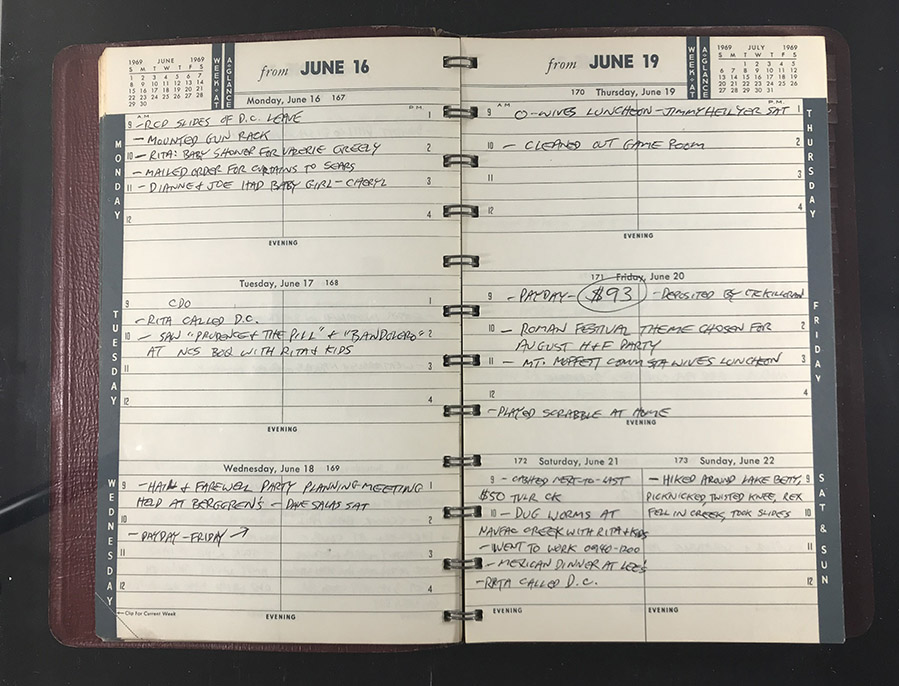 1969 JUNE 1969
S M T W T F S
1 2 3 4 5 6 7
8 9 10 11 12 13 14
15 16 17 18 19 20 21
22 23 24 25 26 27 28
29 30
WEEK-AT
A-GLANCE
from JUNE 16
Monday, June 16 167
MONDAY
A M
P. M.
9 - RCD SLIDES OF D.C. LEAVE 1
- MOUNTED GUN RACK
10 - RITA: BABY SHOWER FOR VALERIE GREELY 2
- MAILED ORDER FOR CURTAINS TO SEARS
11 - DIANNE & JOE HAD BABY GIRL - CHERYL 3
12 4
EVENING
Tuesday, June 17 168
TUESDAY
9 CDO 1
- RITA CALLED D.C.
10 - SAW "PRUDENCE & THE PILL" & "BANDOLERO" 2
AT NCS BOQ WITH RITA & KIDS
11 3
12 4
EVENING
Wednesday, June 18 169
WEDNESDAY
9 - HAIL & FAREWELL PARTY PLANNING MEETING 1
HELD AT BERGGREN'S - DAVE SALAS SAT
10 2
- PAYDAY - FRIDAY
11 3
12 4
Clip For Current Week
EVENING
from JUNE 19
WEEK-AT
A-GLANCE
1969 JULY 1969
S M T W T F S
1 2 3 4 5
6 7 8 9 10 11 12
13 14 15 16 17 18 19
20 21 22 23 24 25 26
27 28 29 30 31
170 Thursday, June 19
THURSDAY
A M
P. M.
9 O-WIVES LUNCHEON - JIMMY HELLYER SAT 1
10 - CLEANED OUT GAME ROOM 2
11 3
12 4
EVENING
171 Friday, June 20
FRIDAY
9 - PAYDAY - $93 - DEPOSITED BY CTC KILLERAN
10 - ROMAN FESTIVAL THEME CHOSEN FOR 2
AUGUST H+F PARTY
11 - MT. MOFFETT COMM STA WIVES LUNCHEON 3
12 4
- PLAYED SCRABBLE AT HOME
EVENING
172 Saturday, June 21
9 - CASHED NEXT-TO-LAST
$50 TVLR CK
10 - DUG WORMS AT
NAVFAC CREEK WITH RITA & KIDS
- WENT TO WORK 0940-1200
- MEXICAN DINNER AT LEE'S
- RITA CALLED D.C.
EVENING
173 Sunday, June 22
SAT & SUN
- HIKED AROUND LAKE BETTY, 9
PICKNICKED TWISTED KNEE, REX
FELL IN CREEK, TOOK SLIDES 10
11
12
EVENING